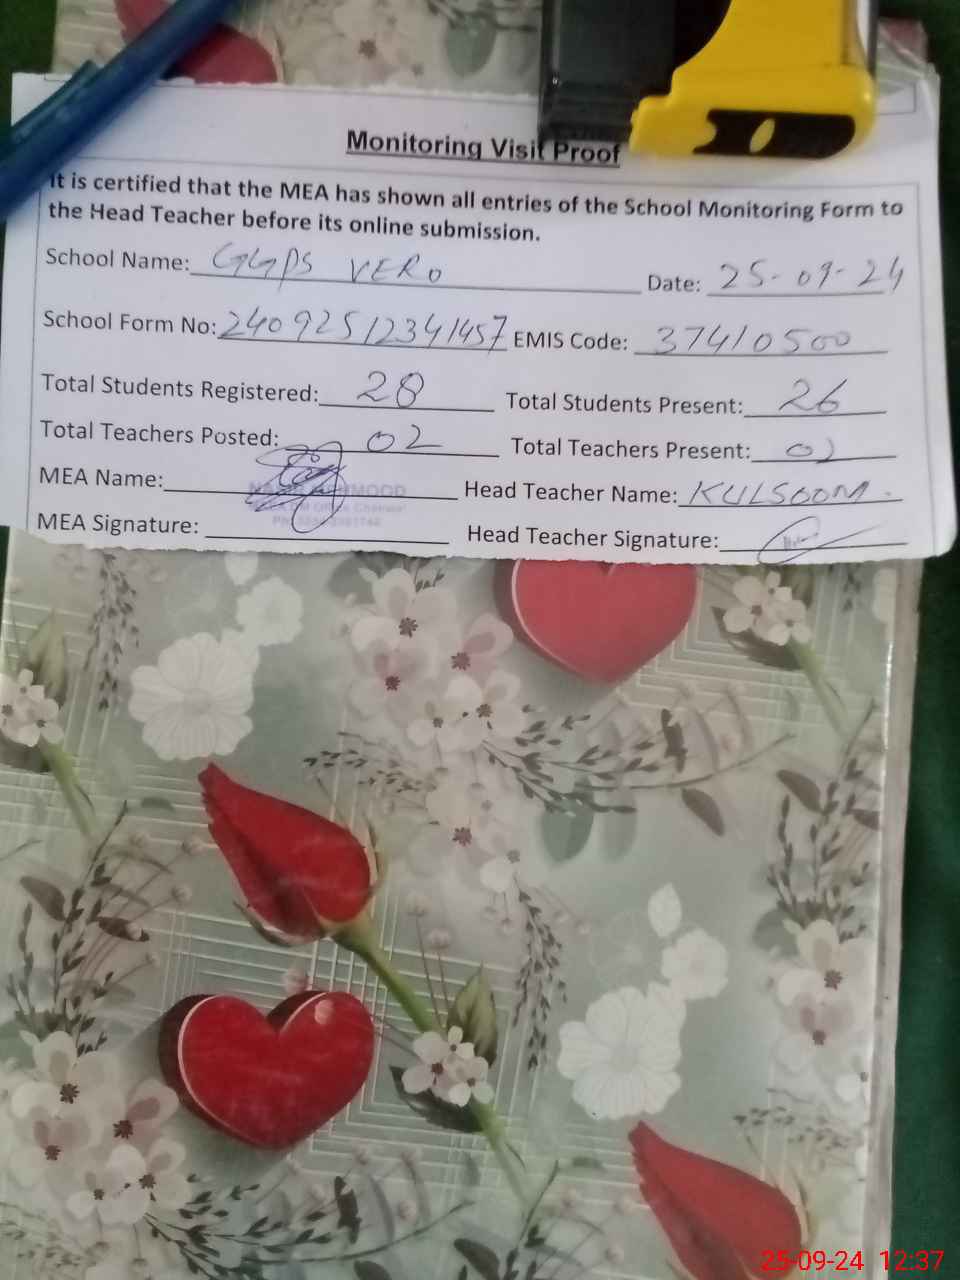 Monitoring Visit Proof
It is certified that the MEA has shown all entries of the School Monitoring Form to
the Head Teacher before its online submission.
School Name: GGPS VERO Date: 25-09-24
School Form No: 24092512341457 EMIS Code: 37410500
Total Students Registered: 28 Total Students Present: 26
Total Teachers Posted: 02 Total Teachers Present:
MEA Name: Head Teacher Name: KULSOOM.
MEA Signature: Head Teacher Signature:
25-09-24 12:37